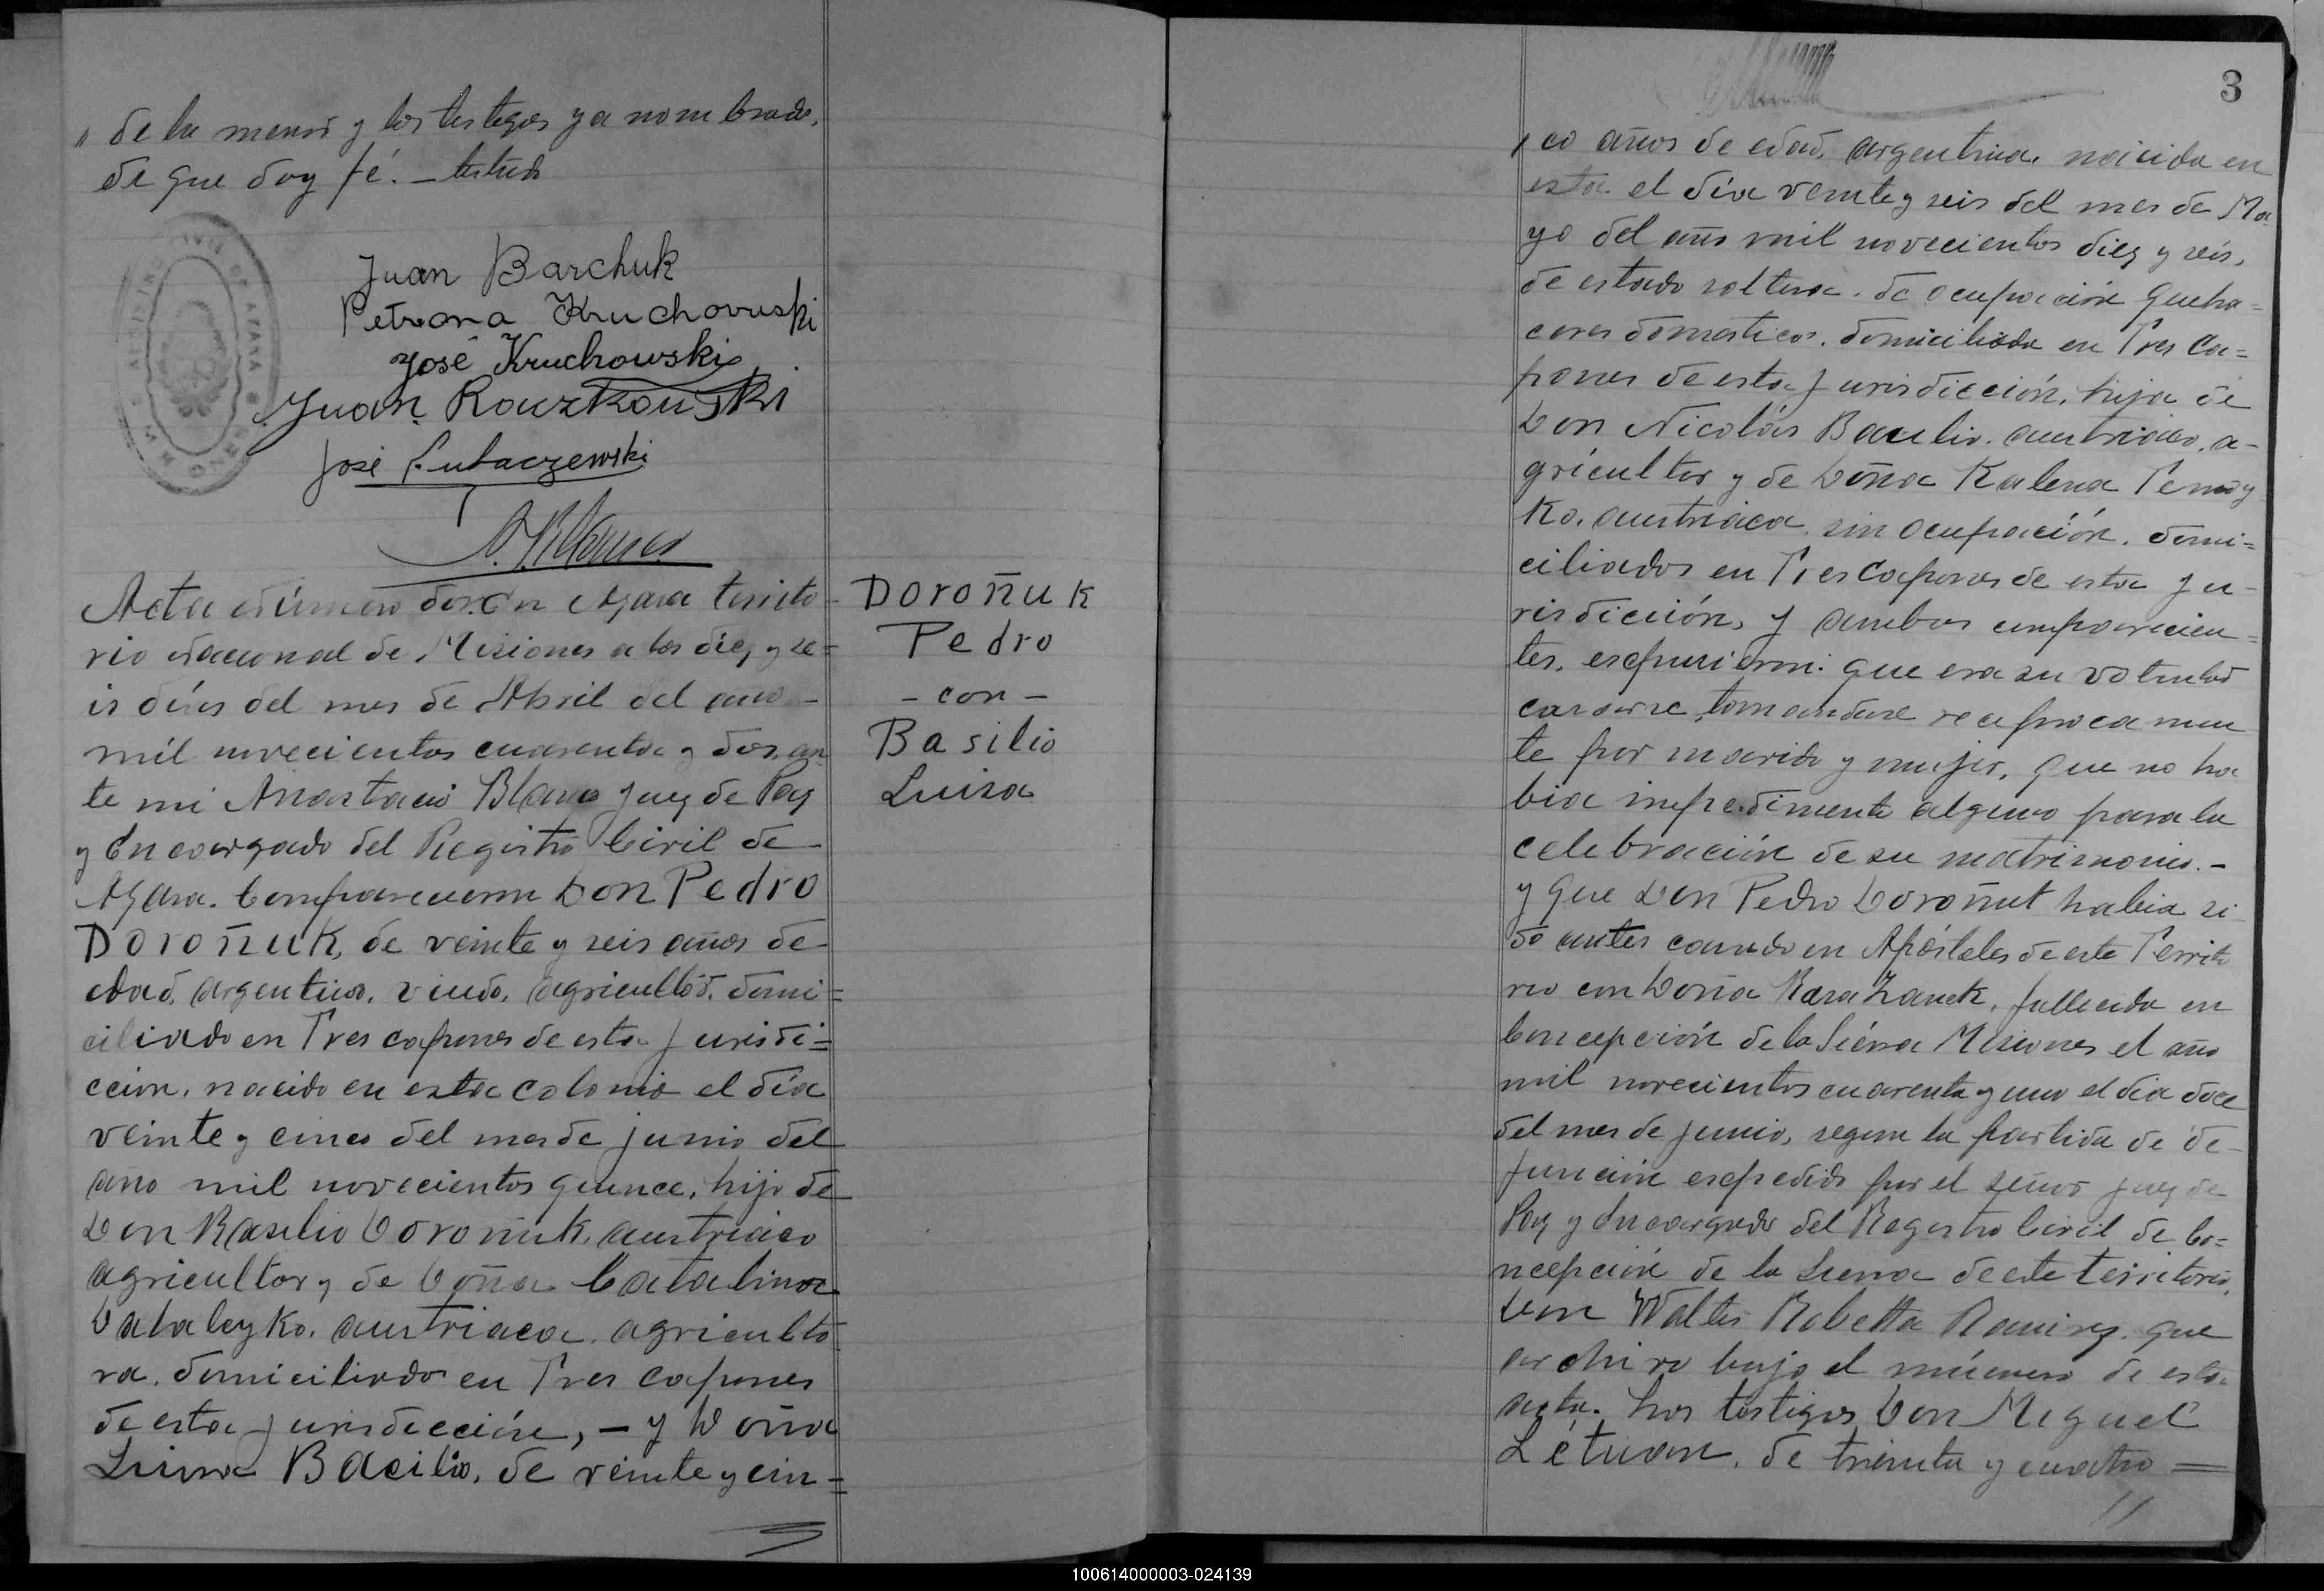 " de la menor y los testigos ya nombrado,
de que doy fé. — testado
Juan Barchuk
Petrona Kruchowski
José Kruchowski
Juan Rouzkouski
José Lutaczewski
Acta número dos. En Azara territo
rio Nacional de Misiones a los diez y se=
is días del mes de Abril del año —
mil novecientos cuarenta y dos, an
te mi Anastacio Blanco Juez de Paz
y Encargado del Registro Civil de
Azara. Comparecieron Don Pedro
Doroñuk, de veinte y seis años de
edad, argentino, viudo, agricultor, domi=
ciliado en Tres capones de esta Jurisdi=
ccion, nacido en esta colonia el día
veinte y cinco del mes de junio del
año mil novecientos quince, hijo de
Don Basilio Doroñuk, austriaco
agricultor y de Doña Catalina
Dataleyko, austriaca, agriculto
ra, domiciliados en Tres capones
de esta jurisdicción, — y Doña
Luisa Bacilio, de veinte y cin=
Doroñuk
Pedro
- con -
Basilio
Luisa
3
co años de edad, argentina, nacida en
esta el día veinte y seis del mes de Ma
yo del año mil novecientos diez y seis,
de estado soltera, de ocupación queha=
ceres domesticos, domiciliada en Tres Ca=
pones de esta Jurisdicción, hija de
Don Nicolás Baulio, austriaco, a-
gricultor y de Doña Kalena
austriaca, sin ocupación, domi=
ciliados en Tres Capones de esta Ju-
risdicción, y ambos comparecien=
tes, expusieron: que era su voluntad
casarse, tomandose reciprocamen
te por marido y mujer, que no ha
bia impedimento alguno para la
celebración de su matrimonio. -
y que Don Pedro Doroñuk habia si
do antes casado en Apóstoles de este Territo
rio con Doña Rosa Zanek, fallecida en
Concepción de la Sierra Misiones el año
mil novecientos cuarenta y uno el dia doce
del mes de junio, segun la partida de de-
función expedida por el señor juez de
Paz y Encargado del Registro Civil de Co=
ncepción de la Sierra de este territorio,
Don Walter Robetta Ramirez, que
archivo bajo el número de esta
acta. Los testigos Don Miguel
Létwan, de treinta y cuatro =
100614000003-024139